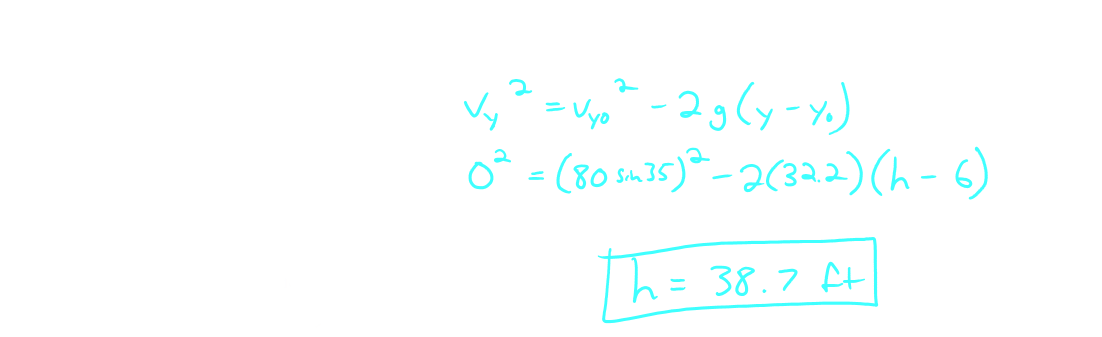 v_y² = v_y0² - 2g(y - y₀)
0² = (80 sin 35)² - 2(32.2)(h - 6)
h = 38.7 ft